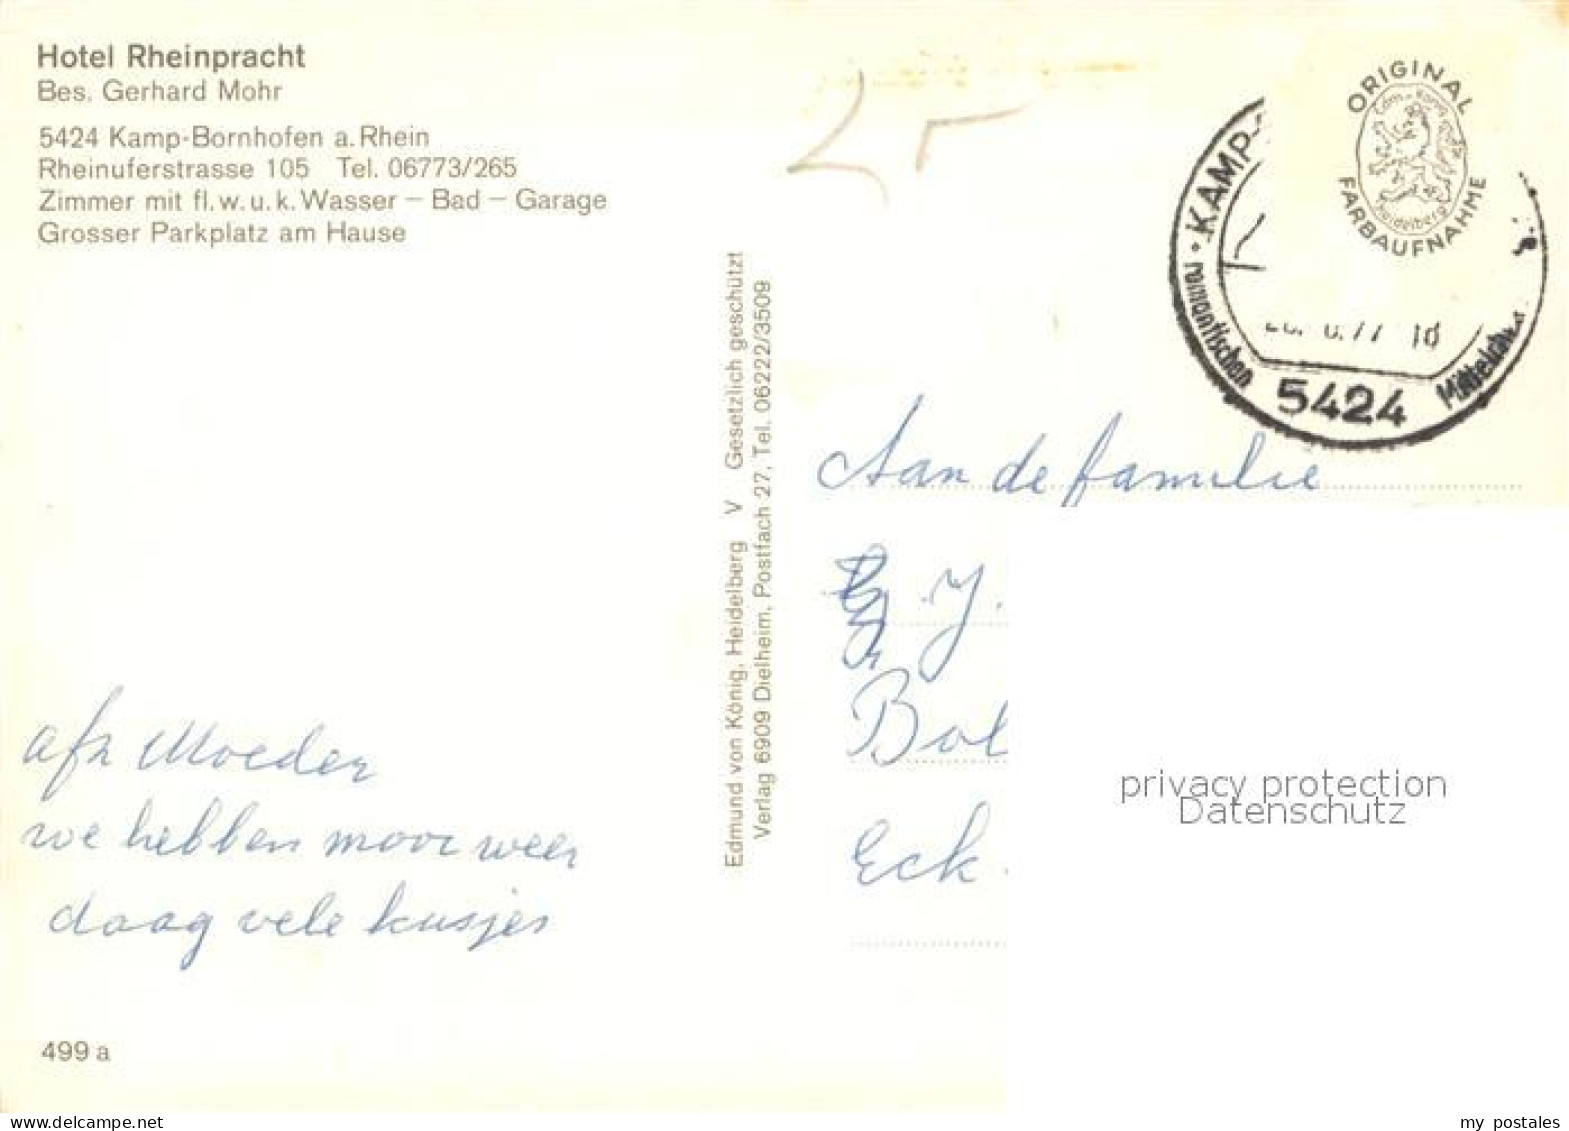 Hotel Rheinpracht
Bes. Gerhard Mohr
5424 Kamp-Bornhofen a. Rhein
Rheinuferstrasse 105 Tel. 06773/265
Zimmer mit fl. w. u. k. Wasser – Bad – Garage
Grosser Parkplatz am Hause
ORIGINAL
FARBAUFNAHME
Heidelberg
KAMP-
romantischen
77
5424
Edmund von König, Heidelberg V Gesetzlich geschützt
Verlag 6909 Dielheim, Postfach 27, Tel. 06222/3509
Aan de familie
J.
Bol
Eck
afz Moeder
we hebben mooi weer
daag vele kusjes
privacy protection
Datenschutz
499 a
my postales